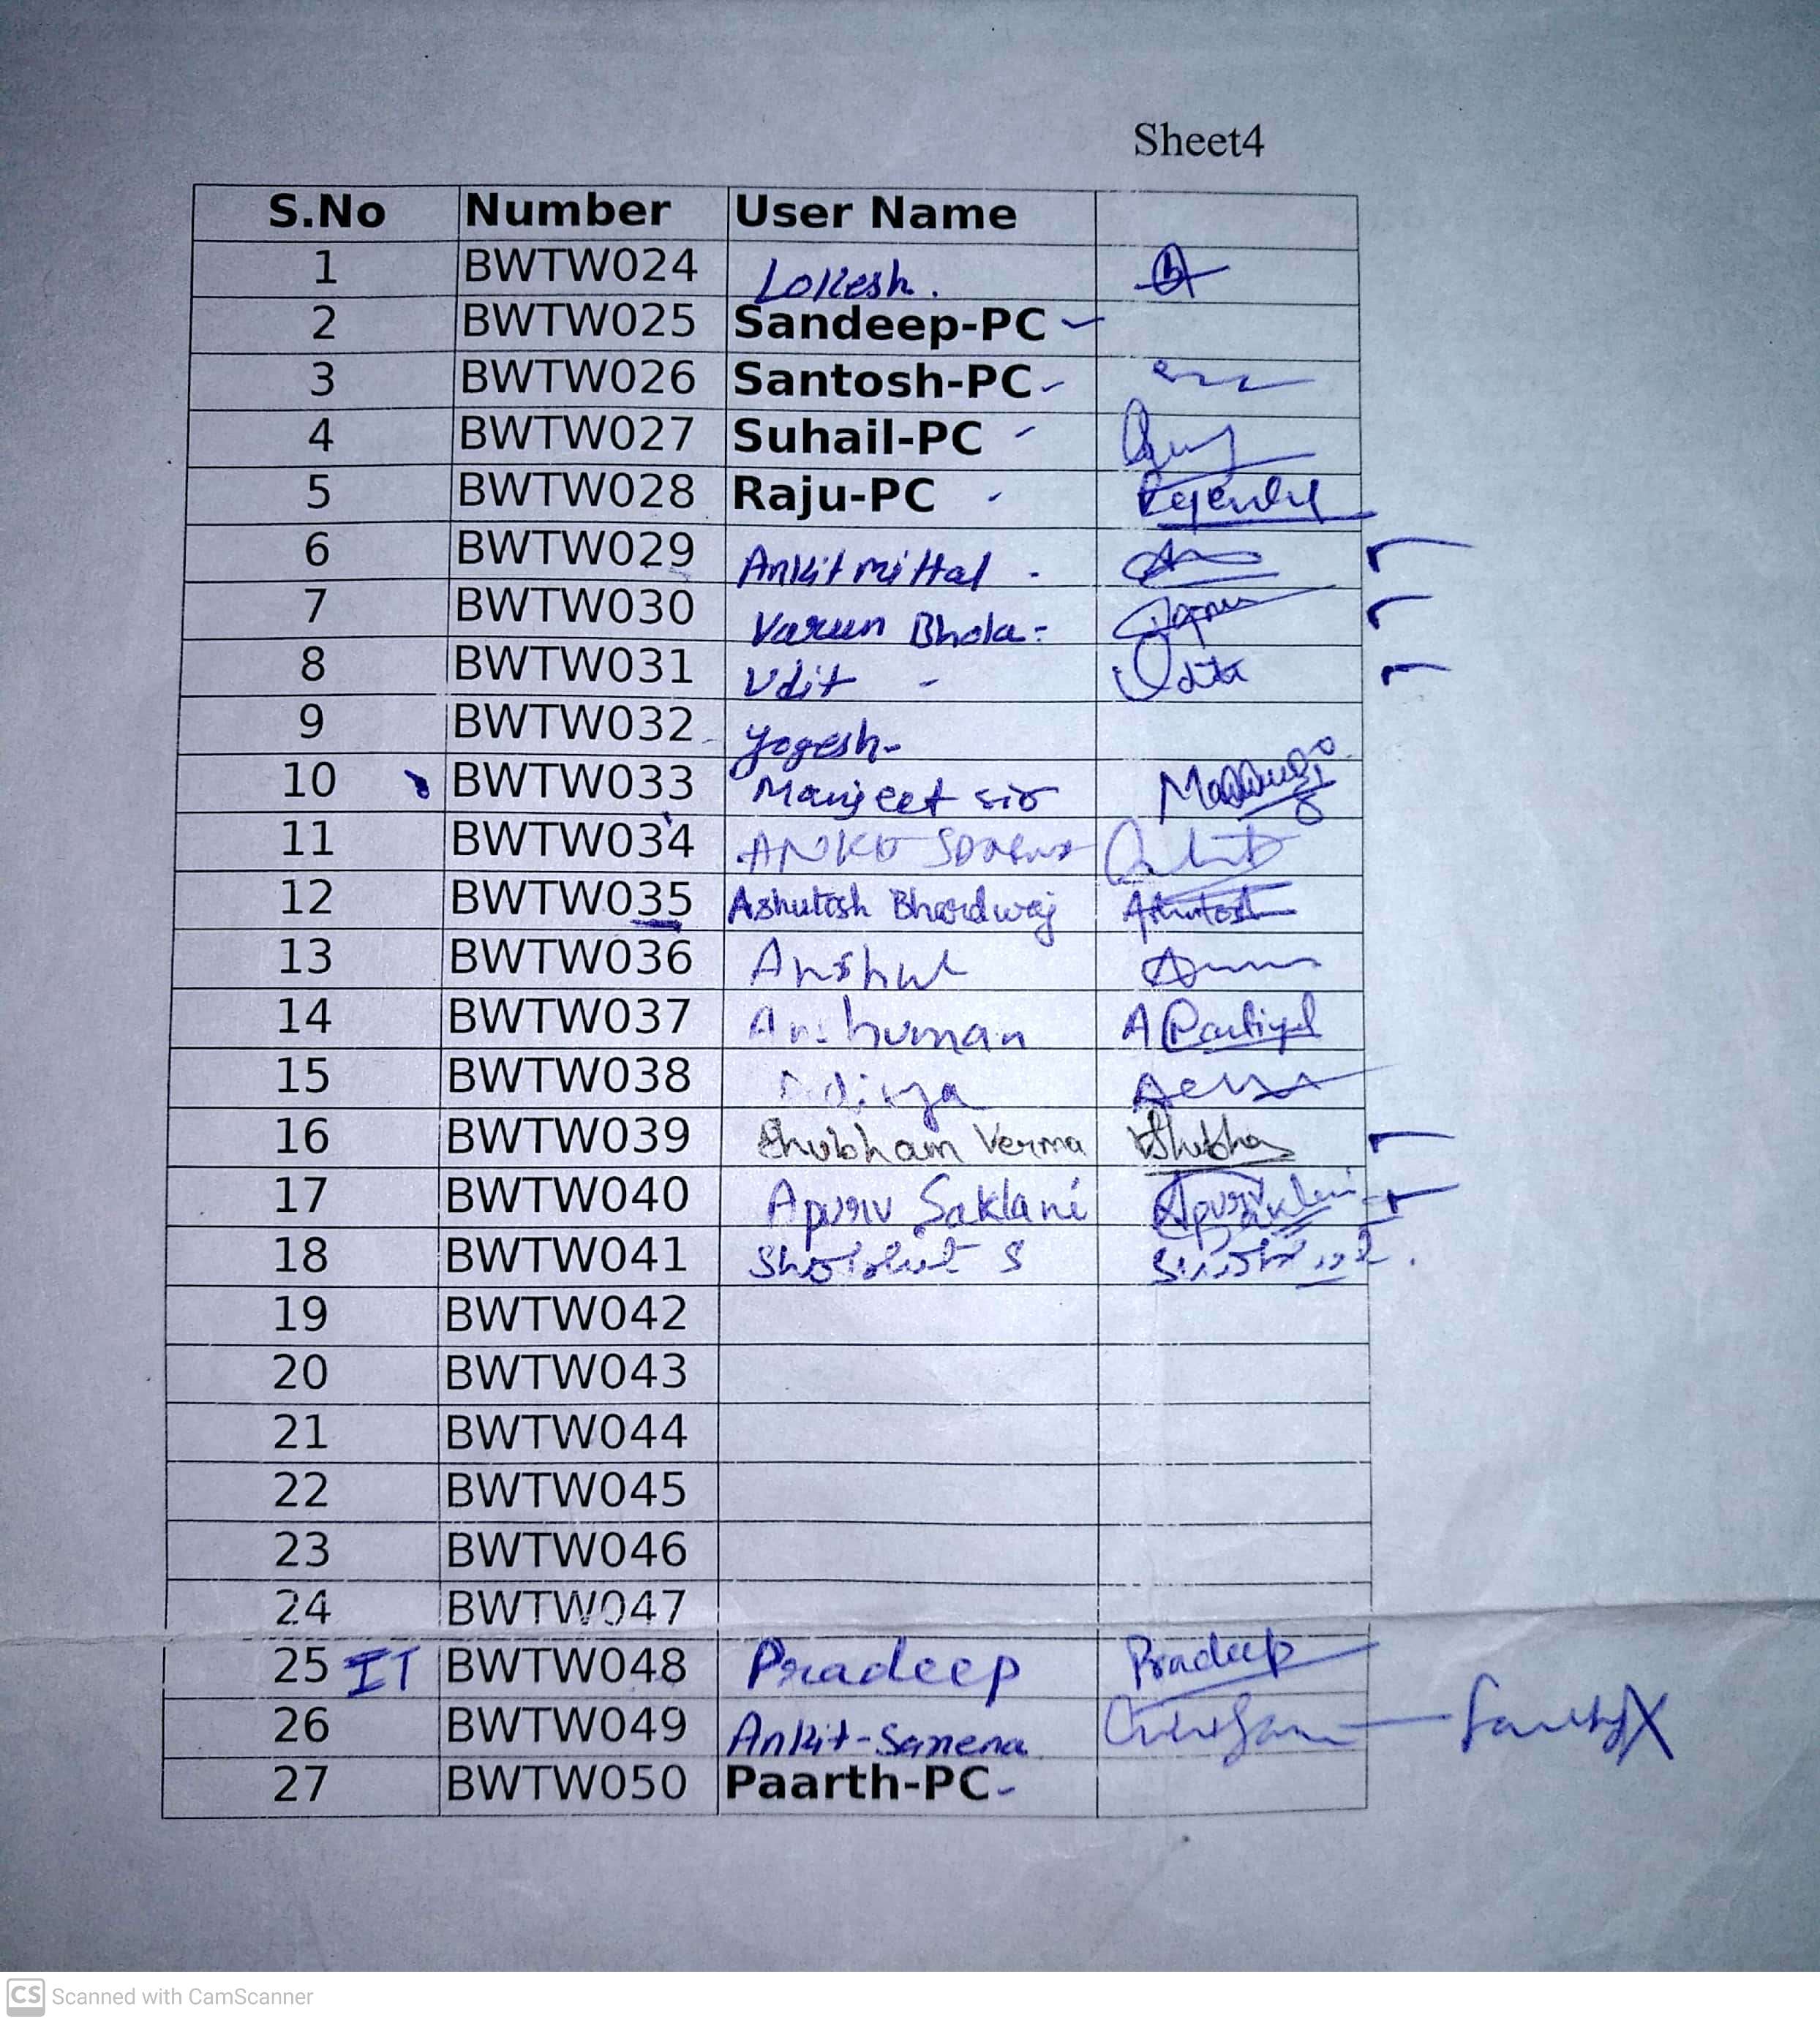 Sheet4
S.No Number User Name
1 BWTW024 Lokesh.
2 BWTW025 Sandeep-PC
3 BWTW026 Santosh-PC
4 BWTW027 Suhail-PC
5 BWTW028 Raju-PC
6 BWTW029 Ankit mittal
7 BWTW030 Varun Bhola
8 BWTW031 Udit Udit
9 BWTW032 yogesh
10 BWTW033 Manjeet sir
11 BWTW034
12 BWTW035 Ashutosh Bhardwaj Ashutosh
13 BWTW036 Anshul
14 BWTW037 Anshuman A
15 BWTW038
16 BWTW039 Shubham Verma
17 BWTW040 Apurv Saklani Apurv Saklani
18 BWTW041 S
19 BWTW042
20 BWTW043
21 BWTW044
22 BWTW045
23 BWTW046
24 BWTW047
25 IT BWTW048 Pradeep Pradeep
26 BWTW049 Ankit-Saxena
27 BWTW050 Paarth-PC
CS Scanned with CamScanner